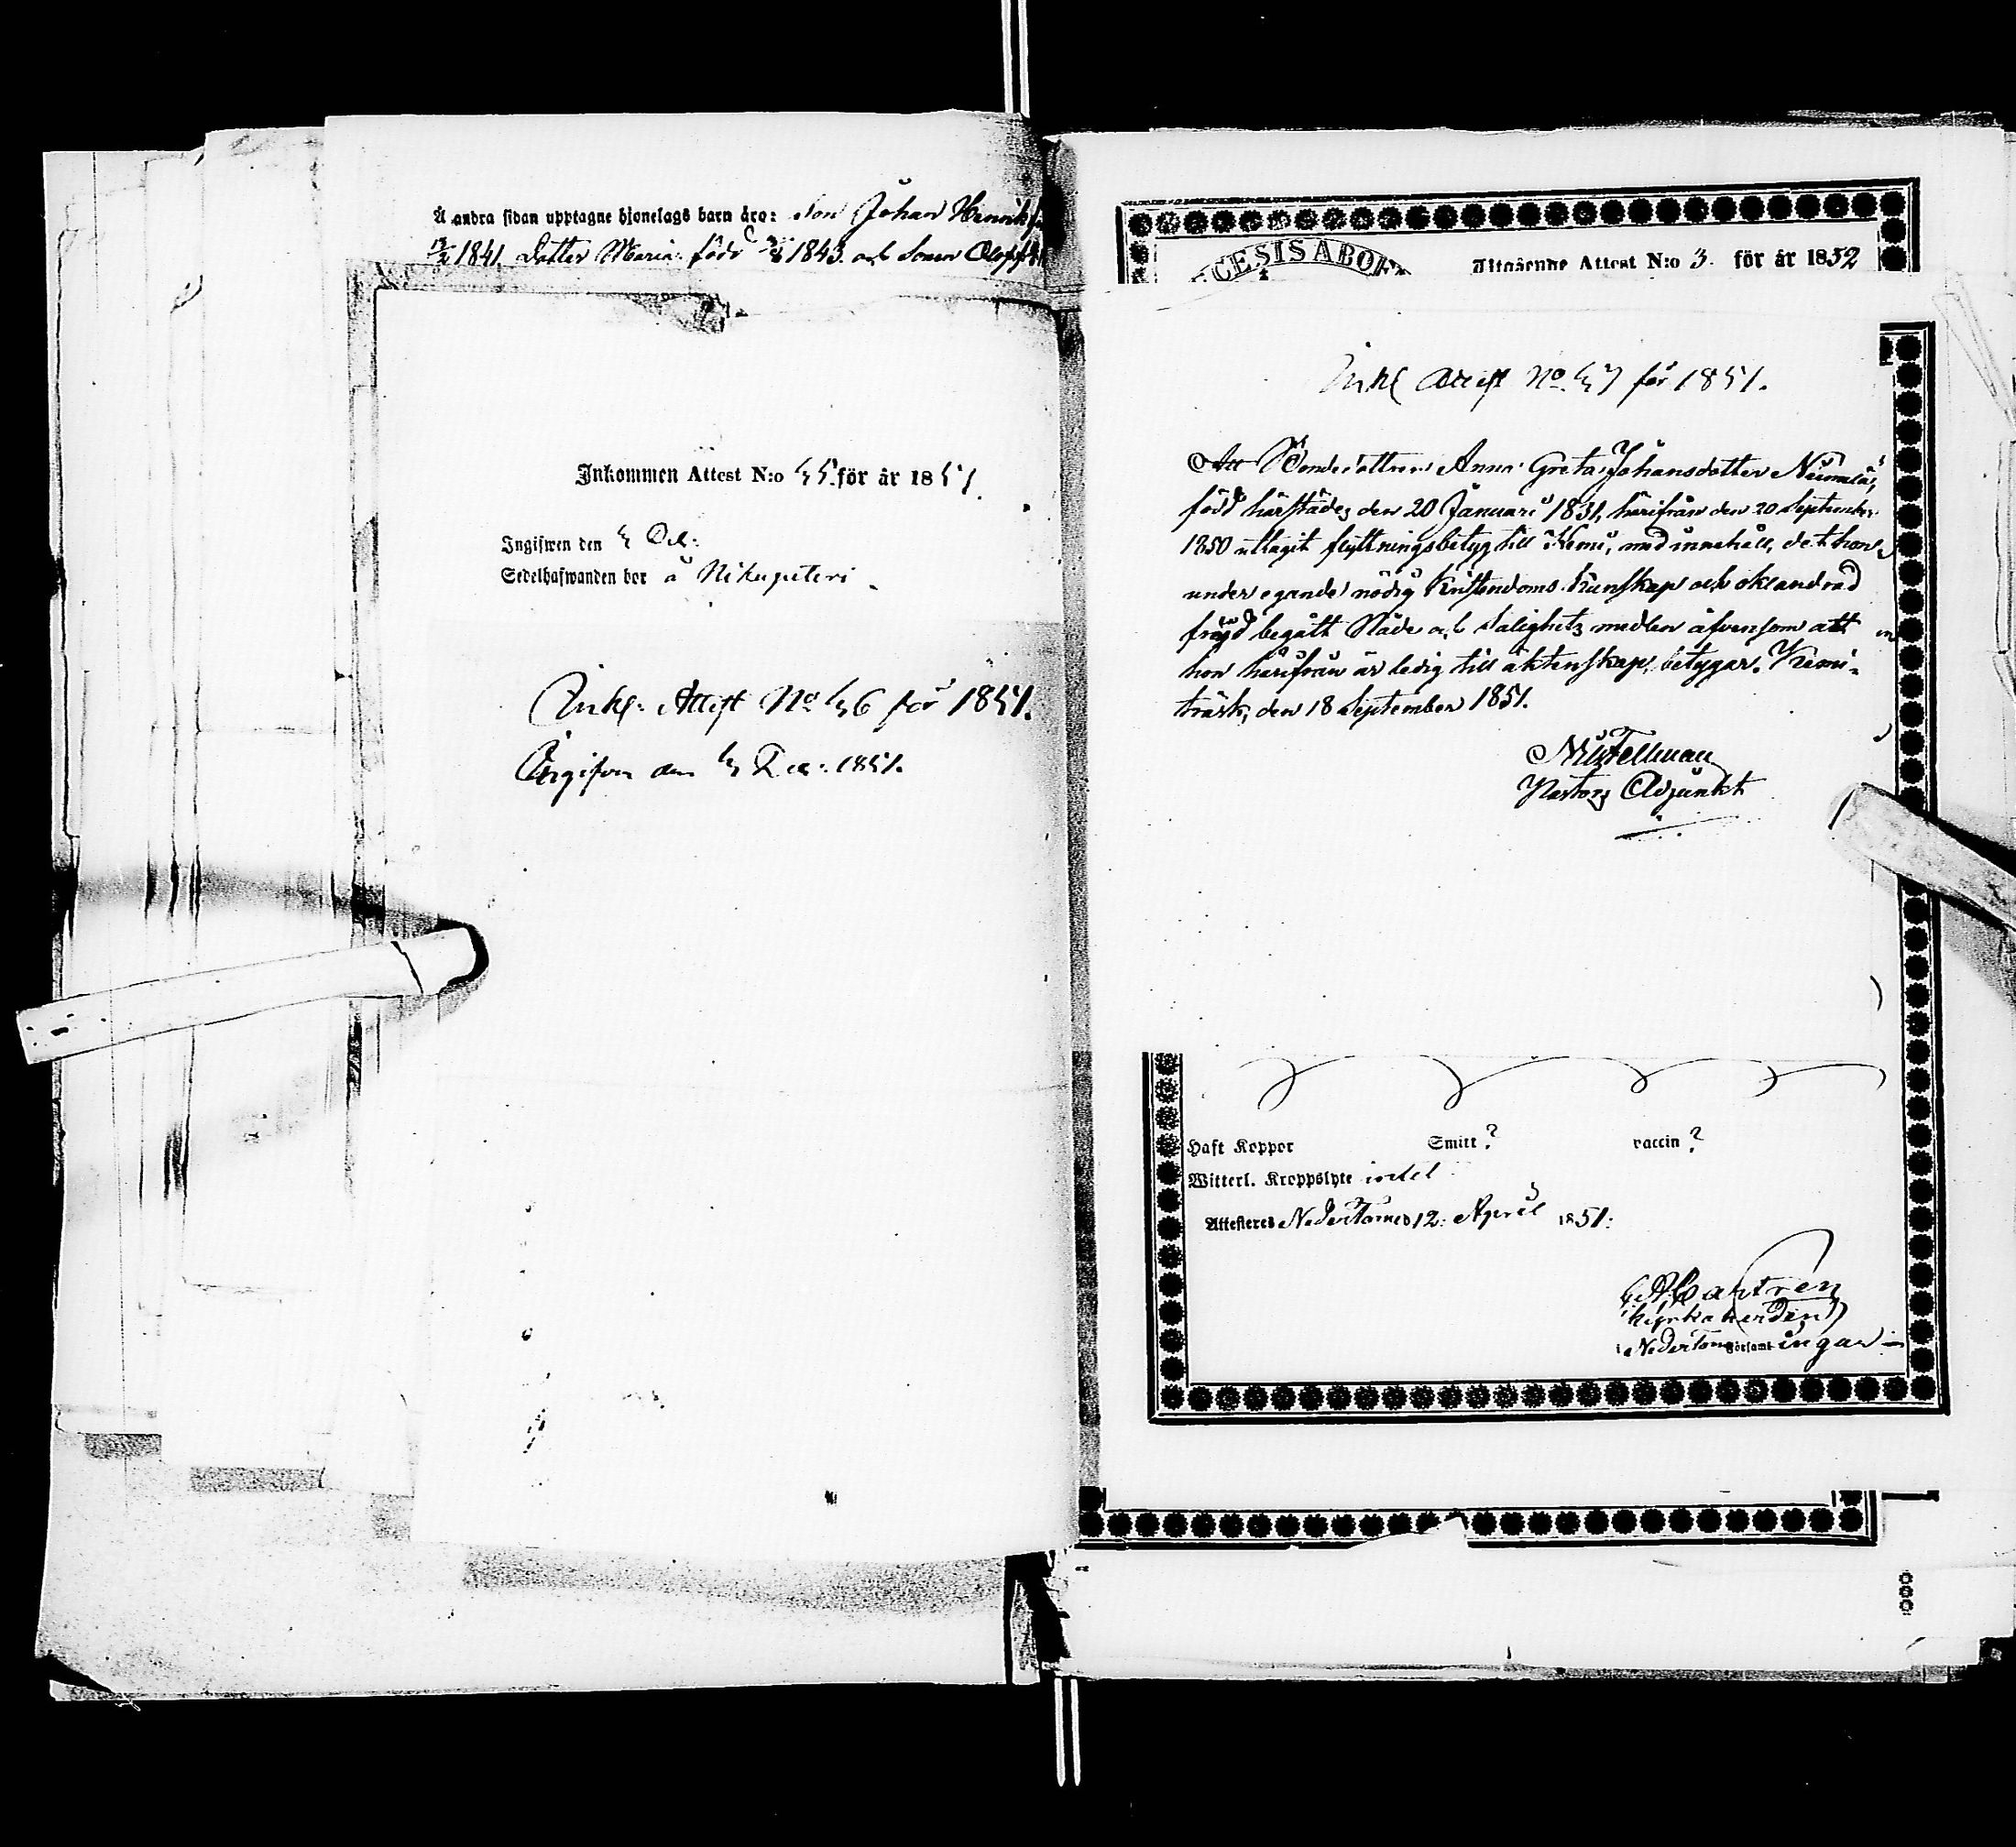 Å andra sidan upptagne hjonelags barn äro: son Johan Henrik
1841. Dotter Maria född 1843. och Sonen Oloff
Inkommen Attest N:o 45. för år 1851.
Ingifwen den 4 Oct:
Sedelhafwanden bor å Nikupeteri
Inkf. Attest No 46 för 1851.
Ingifven den 4 1851.
CESIS ABOE
Utgående Attest N:o 3. för år 1852
Inkf Attest No 47 för 1851.
Att Bondedottren Anna Greta Johansdotter
född härstädes den 20 Januari 1831, härifrån den 20 September
1850 uttagit flyttningsbetyg till Kemi, med innehåll, det hon,
under egande nödig Kristendoms kunskap och oklandrad
fräjd begått Nåde och Salighets medlen äfvensom att
hon härifrån är ledig till äktenskap, betygar. Kemi-
träsk, den 18 September 1851.
Fellman
Pastors Adjunkt
Haft Koppor Smitt? vaccin?
Witterl. Kroppslyte intet
Attesteres NederTorneå 12: April 1851:
Castrén
Kyrkoherde in
NederTorneå Församl ingar